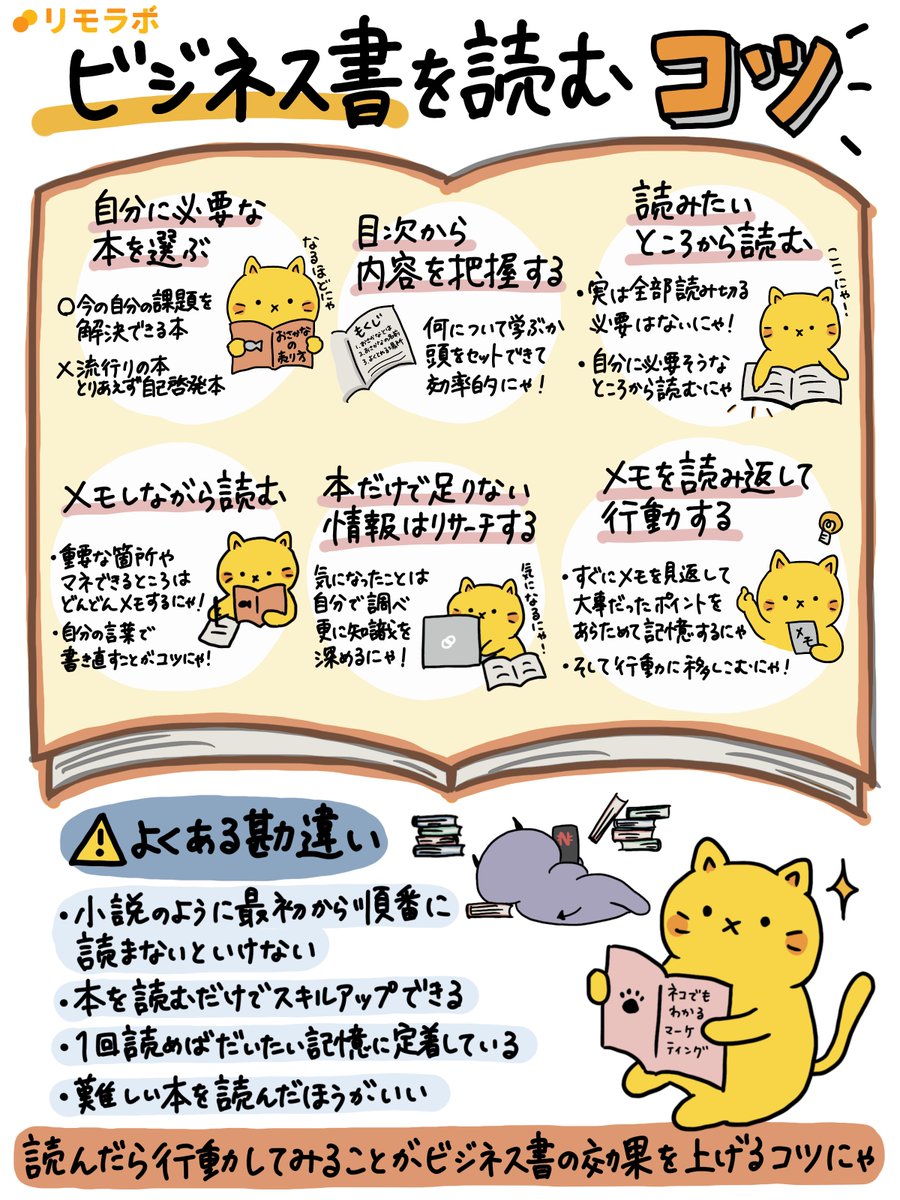 リモラボ
ビジネス書を読むコツ
自分に必要な
本を選ぶ
なるほどにゃ
○今の自分の課題を
解決できる本
×流行りの本
とりあえず自己啓発本
おさかな
の
売り方
目次から
内容を把握する
もくじ
何について学ぶか
頭をセットできて
効率的にゃ!
読みたい
ところから読む
ここにゃ!
・実は全部読み切る
必要はないにゃ!
・自分に必要そうな
ところから読むにゃ
メモしながら読む
・重要な箇所や
マネできるところは
どんどんメモするにゃ!
・自分の言葉で
書き直すことがコツにゃ!
本だけで足りない
情報はリサーチする
気になったことは
自分で調べ
更に知識を
深めるにゃ!
気になるにゃ!
メモを読み返して
行動する
・すぐにメモを見返して
大事だったポイントを
あらためて記憶するにゃ
・そして行動に移しこむにゃ!
メモ
よくある勘違い
・小説のように最初から順番に
読まないといけない
・本を読むだけでスキルアップできる
・1回読めばだいたい記憶に定着している
・難しい本を読んだほうがいい
N
ネコでも
わかる
マーケ
ティング
読んだら行動してみることがビジネス書の効果を上げるコツにゃ